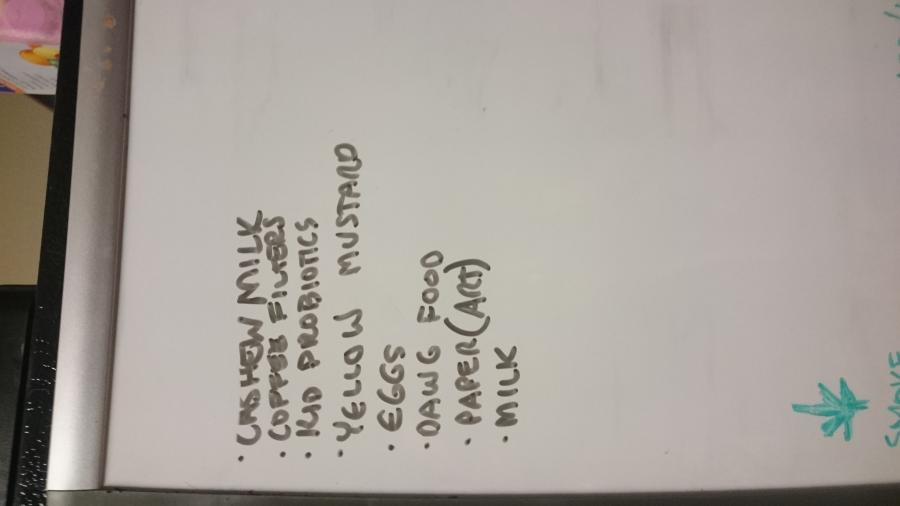 • CASHEW MILK
• COFFEE FILTERS
• KID PROBIOTICS
• YELLOW MUSTARD
• EGGS
• DAWG FOOD
• PAPER (ART)
• MILK
SMOKE